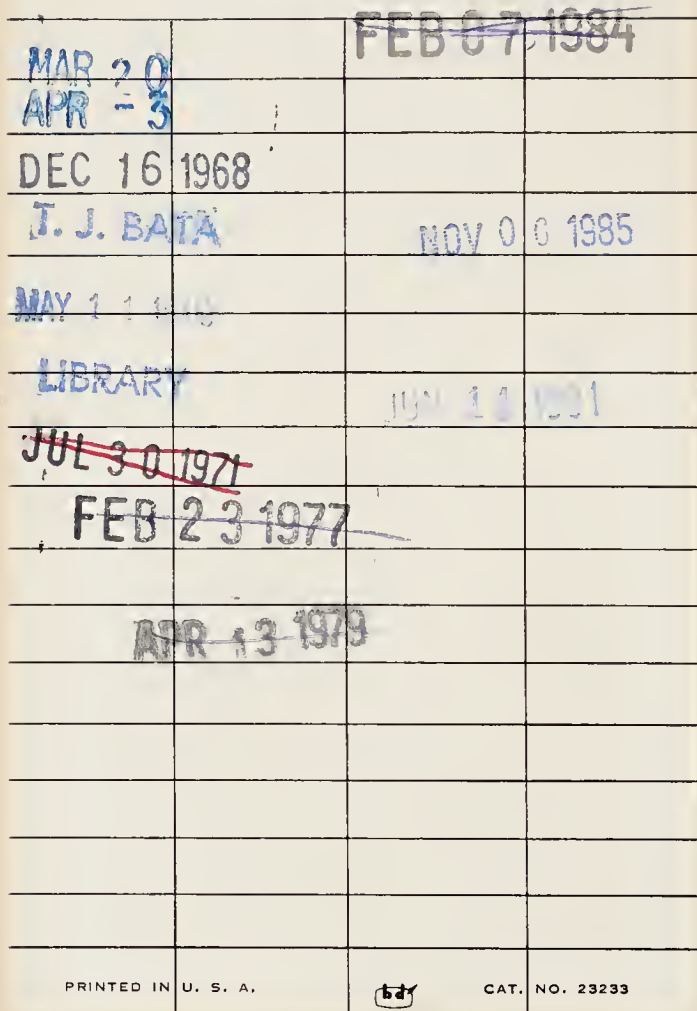 MAR 20
APR - 3
DEC 16 1968
T. J. BATA
MAY 11
LIBRARY
JUL 30 1971
FEB 23 1977
APR 13 1979
FEB 07 1984
NOV 06 1985
JUN 11 1991
PRINTED IN U. S. A.
bd
CAT. NO. 23233